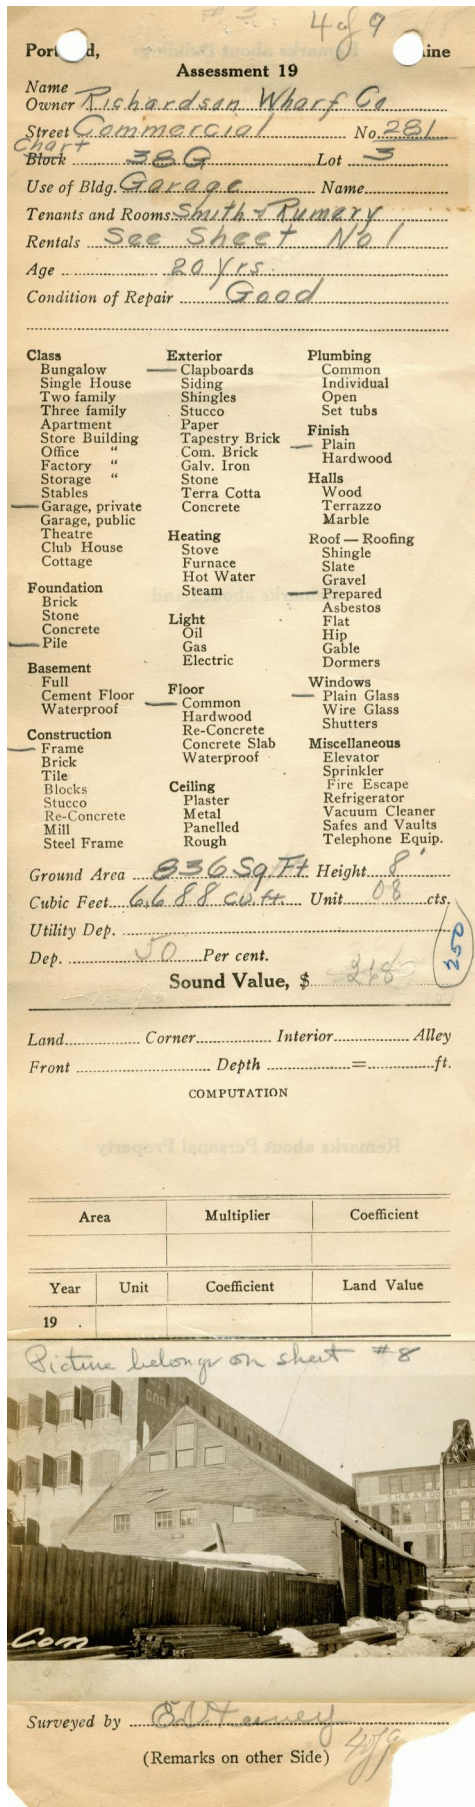 4 of 9
Portland, Maine
Assessment 19
Name
Owner Richardson Wharf Co
Street Commercial No. 281
Chart
Block 38G Lot 3
Use of Bldg. Garage Name
Tenants and Rooms Smith & Rumery
Rentals See Sheet No 1
Age 20 Yrs.
Condition of Repair Good
Class
Bungalow
Single House
Two family
Three family
Apartment
Store Building
Office "
Factory "
Storage "
Stables
Garage, private
Garage, public
Theatre
Club House
Cottage
Foundation
Brick
Stone
Concrete
Pile
Basement
Full
Cement Floor
Waterproof
Construction
Frame
Brick
Tile
Blocks
Stucco
Re-Concrete
Mill
Steel Frame
Exterior
Clapboards
Siding
Shingles
Stucco
Paper
Tapestry Brick
Com. Brick
Galv. Iron
Stone
Terra Cotta
Concrete
Heating
Stove
Furnace
Hot Water
Steam
Light
Oil
Gas
Electric
Floor
Common
Hardwood
Re-Concrete
Concrete Slab
Waterproof
Ceiling
Plaster
Metal
Panelled
Rough
Plumbing
Common
Individual
Open
Set tubs
Finish
Plain
Hardwood
Halls
Wood
Terrazzo
Marble
Roof — Roofing
Shingle
Slate
Gravel
Prepared
Asbestos
Flat
Hip
Gable
Dormers
Windows
Plain Glass
Wire Glass
Shutters
Miscellaneous
Elevator
Sprinkler
Fire Escape
Refrigerator
Vacuum Cleaner
Safes and Vaults
Telephone Equip.
Ground Area 836 Sq Ft Height 8'
Cubic Feet 6688 cu. ft. Unit 08 cts.
Utility Dep.
Dep. 50 Per cent.
250
Sound Value, $ 268
Land Corner Interior Alley
Front Depth = ft.
COMPUTATION
Area Multiplier Coefficient
Year Unit Coefficient Land Value
19
Picture belongs on sheet #8
Com
Surveyed by
(Remarks on other Side)
4 of 9